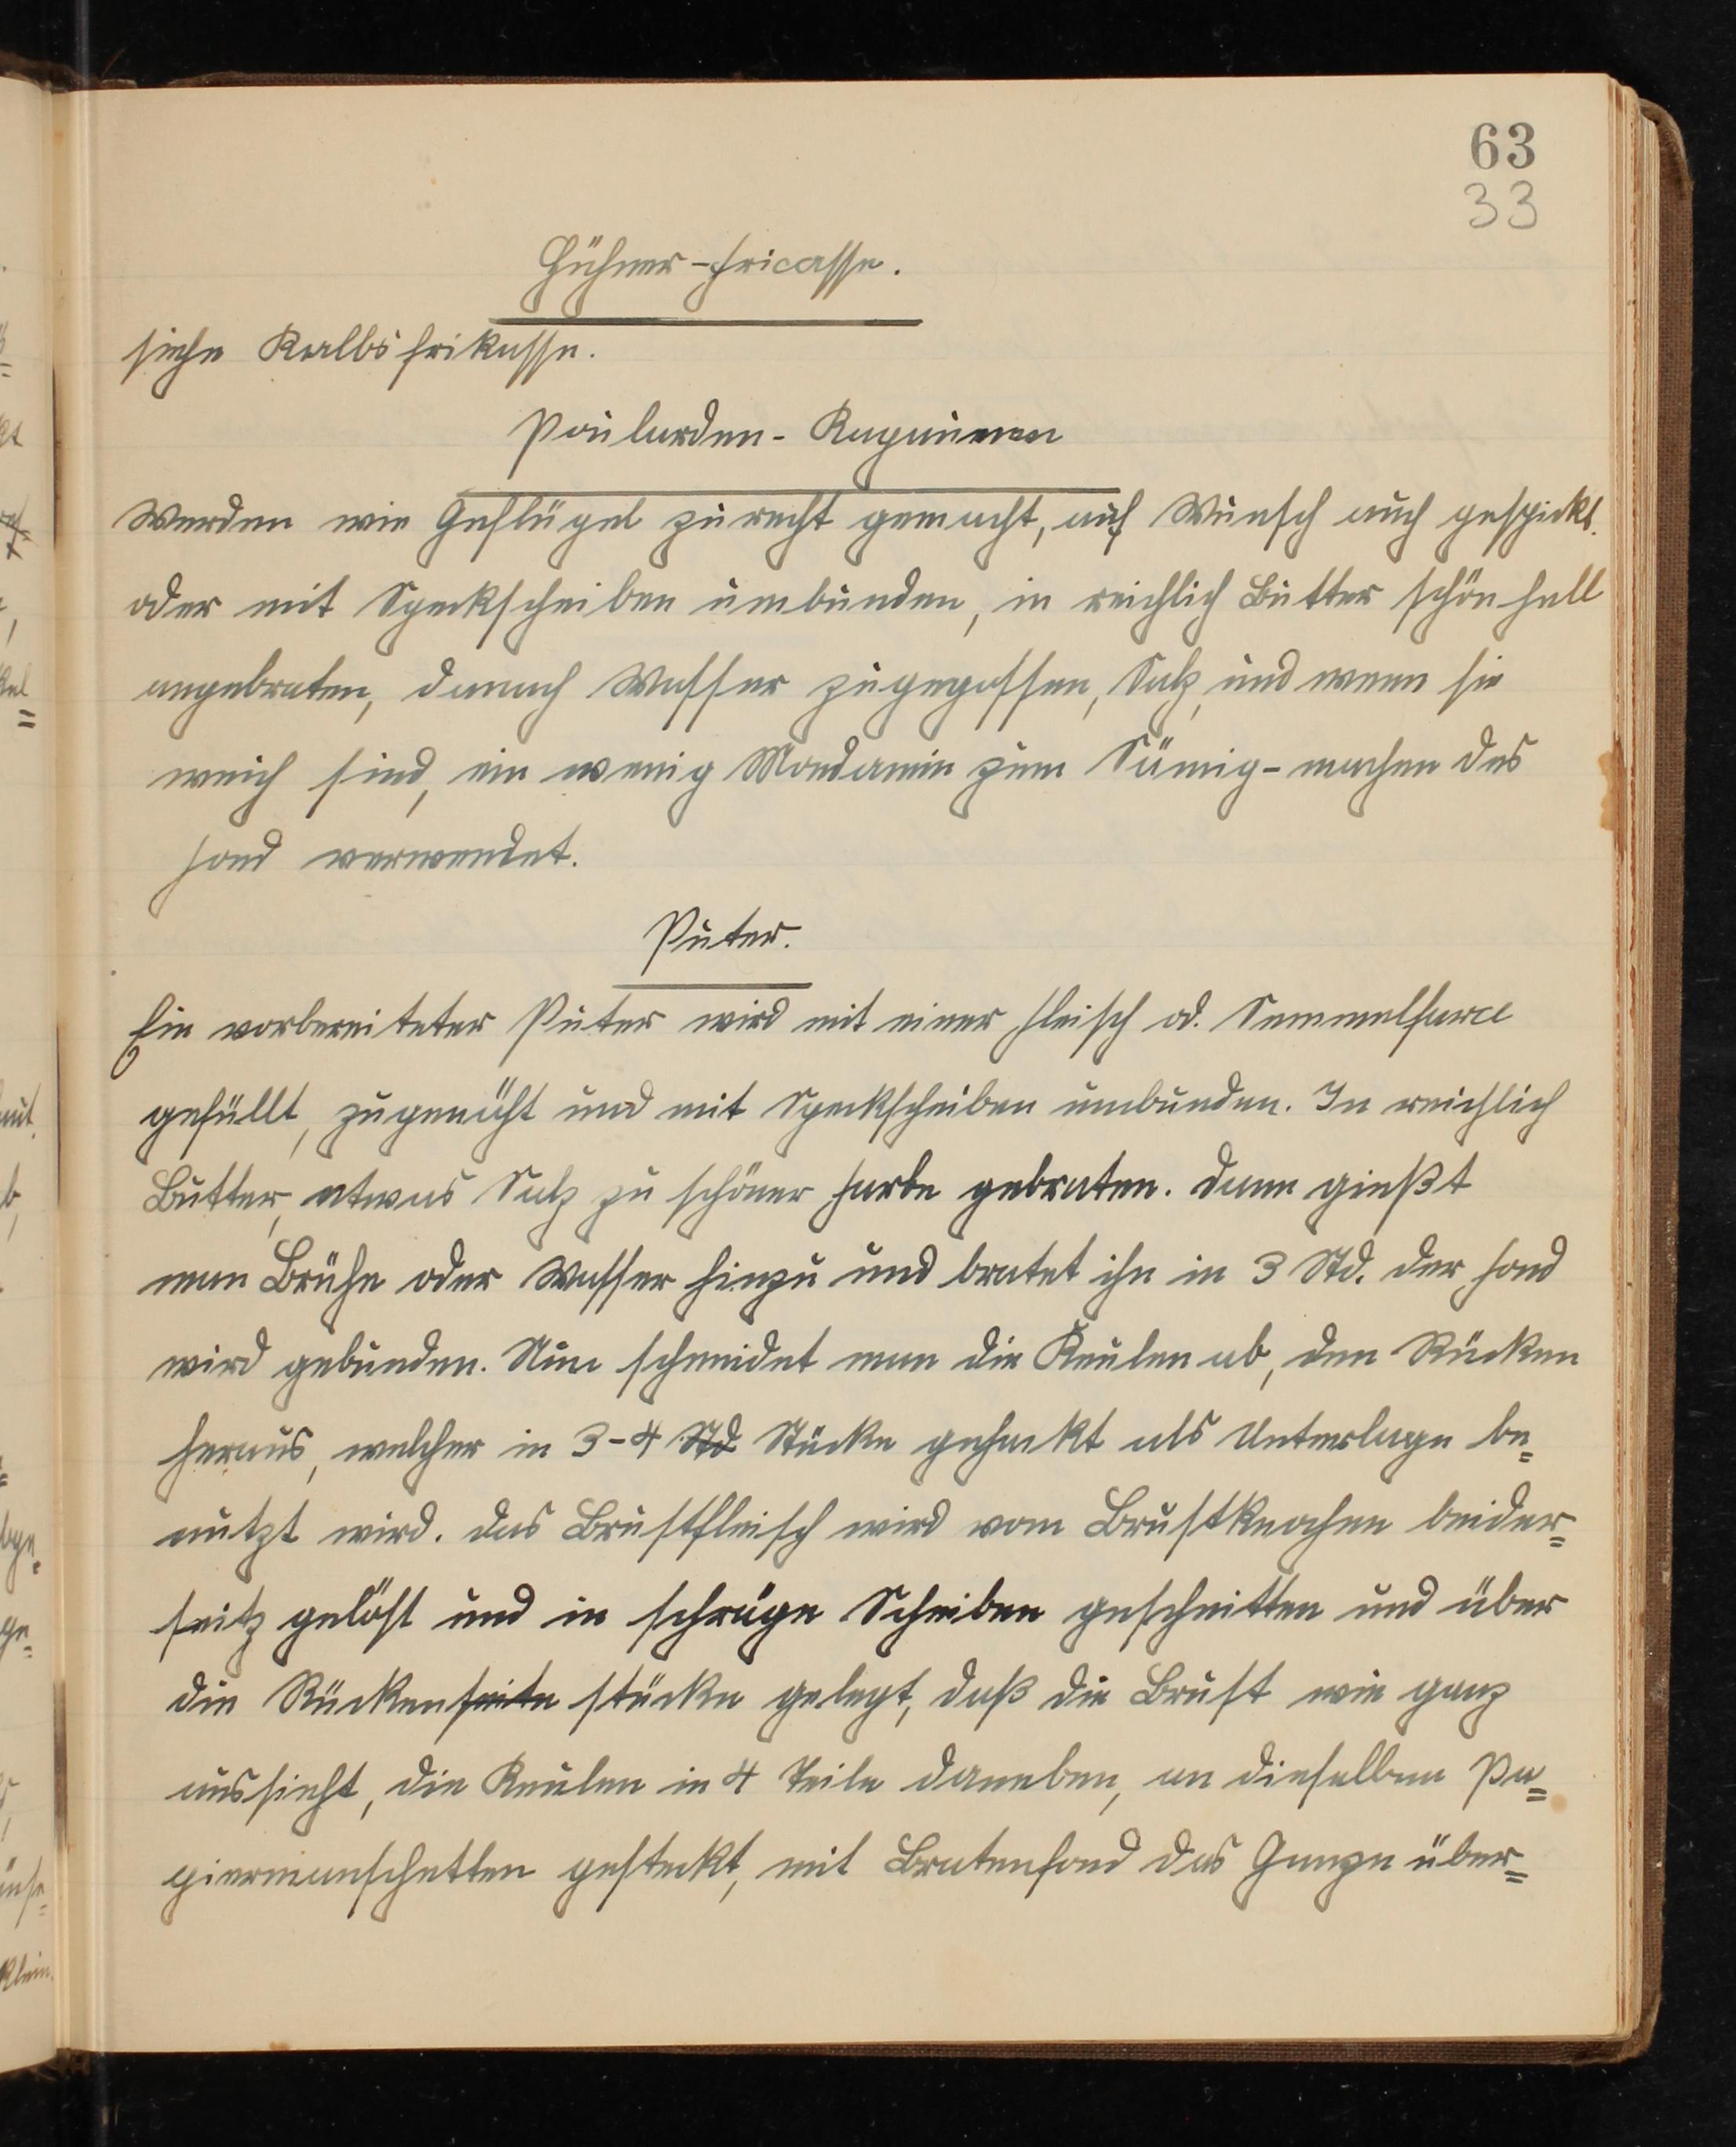 63
33
Hühner-Fricasse.
siehe Kalbsfrikasse.
Poularden-Kapaunen
Werden wie Geflügel zurecht gemacht, auf Wunsch auch gespickt.
oder mit Speckscheiben umbunden, in reichlich Butter schön hell
angebraten, danach Wasser zugegossen, Salz, und wenn sie
weich sind, ein wenig Mondamin zum Sämig-machen des
Fond verwendet.
Puter.
Ein vorbereiteter Puter wird mit einer Fleisch od. Semmelfarce
gefüllt, zugenäht und mit Speckscheiben umbunden. In reichlich
Butter, etwas Salz zu schöner Farbe gebraten. Dann gießt
man Brühe oder Wasser hinzu und bratet ihn in 3 Std. Der Fond
wird gebunden. Nun schneidet man die Keulen ab, den Rücken
heraus, welcher in 3-4 Std Stücke gehackt als Unterlage be=
nutzt wird. Das Brustfleisch wird vom Brustknochen beider=
seitz gelöst und in schräge Scheiben geschnitten und über
die Rückenseite stücke gelegt, daß die Brust wie ganz
aussieht, die Keulen in 4 Teile daneben, an dieselben Pa=
piermanschetten gesteckt, mit Bratenfond das Ganze über=